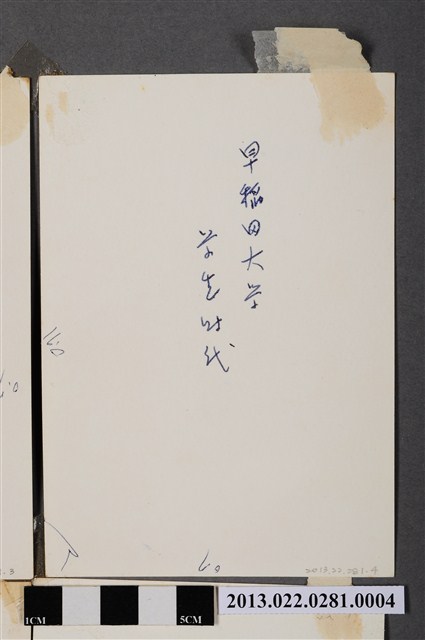 早稲田大学
学生时代
16.0
2013.22.281.4
1CM
5CM
2013.022.0281.0004